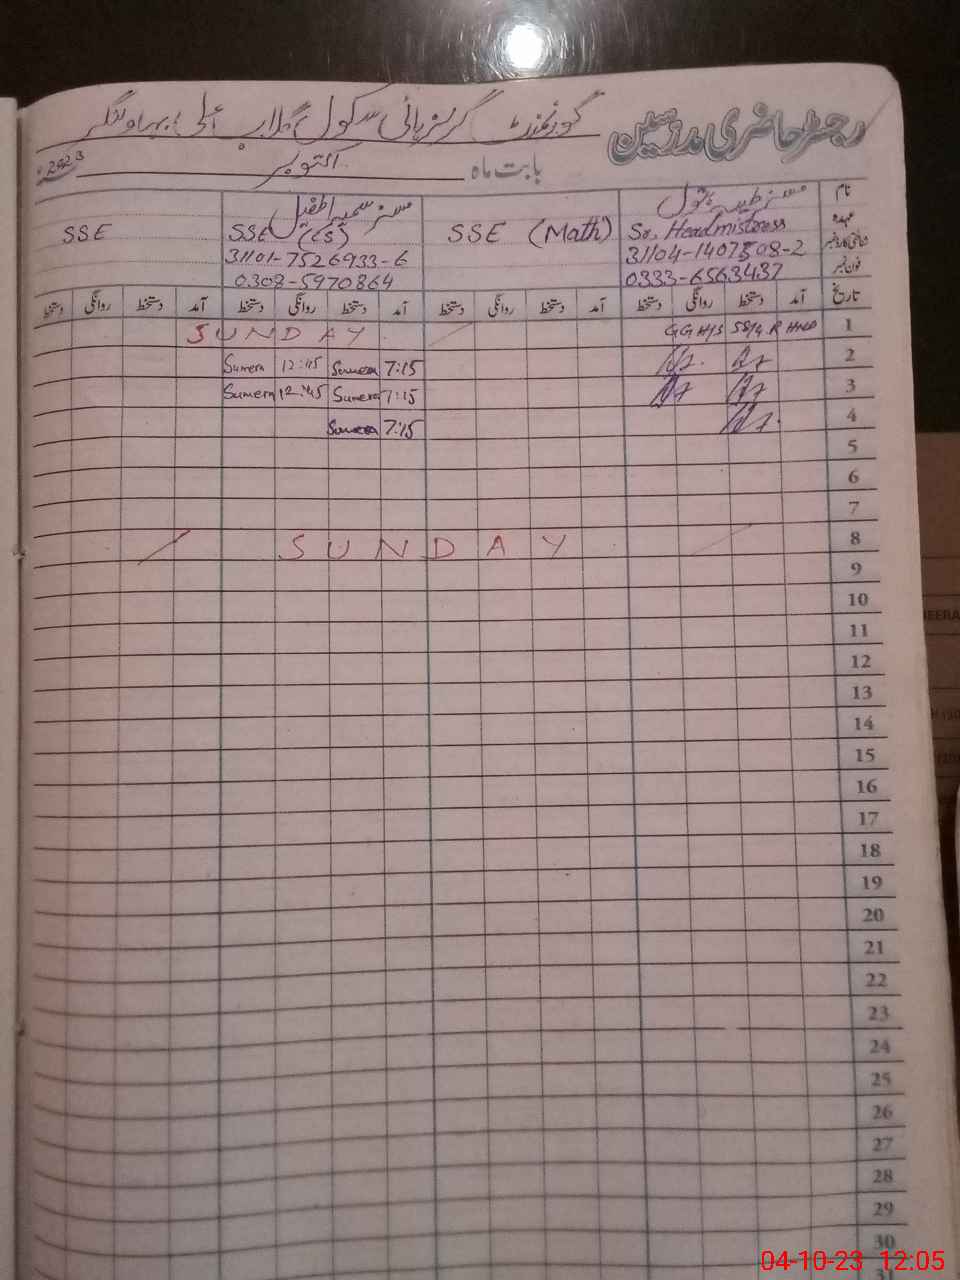 رجسٹر حاضری مدرسین
گورنمنٹ گرلز ہائی سکول گلاب علی بہاولنگر
بابت ماہ اکتوبر 2023
نام مسز طیبہ بتول مسز سمیرا طفیل
عہدہ Sr. Headmistress SSE (Math) SSE (CS) SSE
شناختی کارڈ نمبر 31104-1407508-2 31101-7526933-6
فون نمبر 0333-6563437 0308-5970864
تاریخ آمد دستخط روانگی دستخط آمد دستخط روانگی دستخط آمد دستخط روانگی دستخط آمد دستخط روانگی دستخط
1 SUNDAY
2 7:15 Sumera 12:45 Sumera
3 7:15 Sumera 12:45 Sumera
4 7:15 Sumera
5
6
7
8 SUNDAY
9
10
11
12
13
14
15
16
17
18
19
20
21
22
23
24
25
26
27
28
29
30
31
04-10-23 12:05